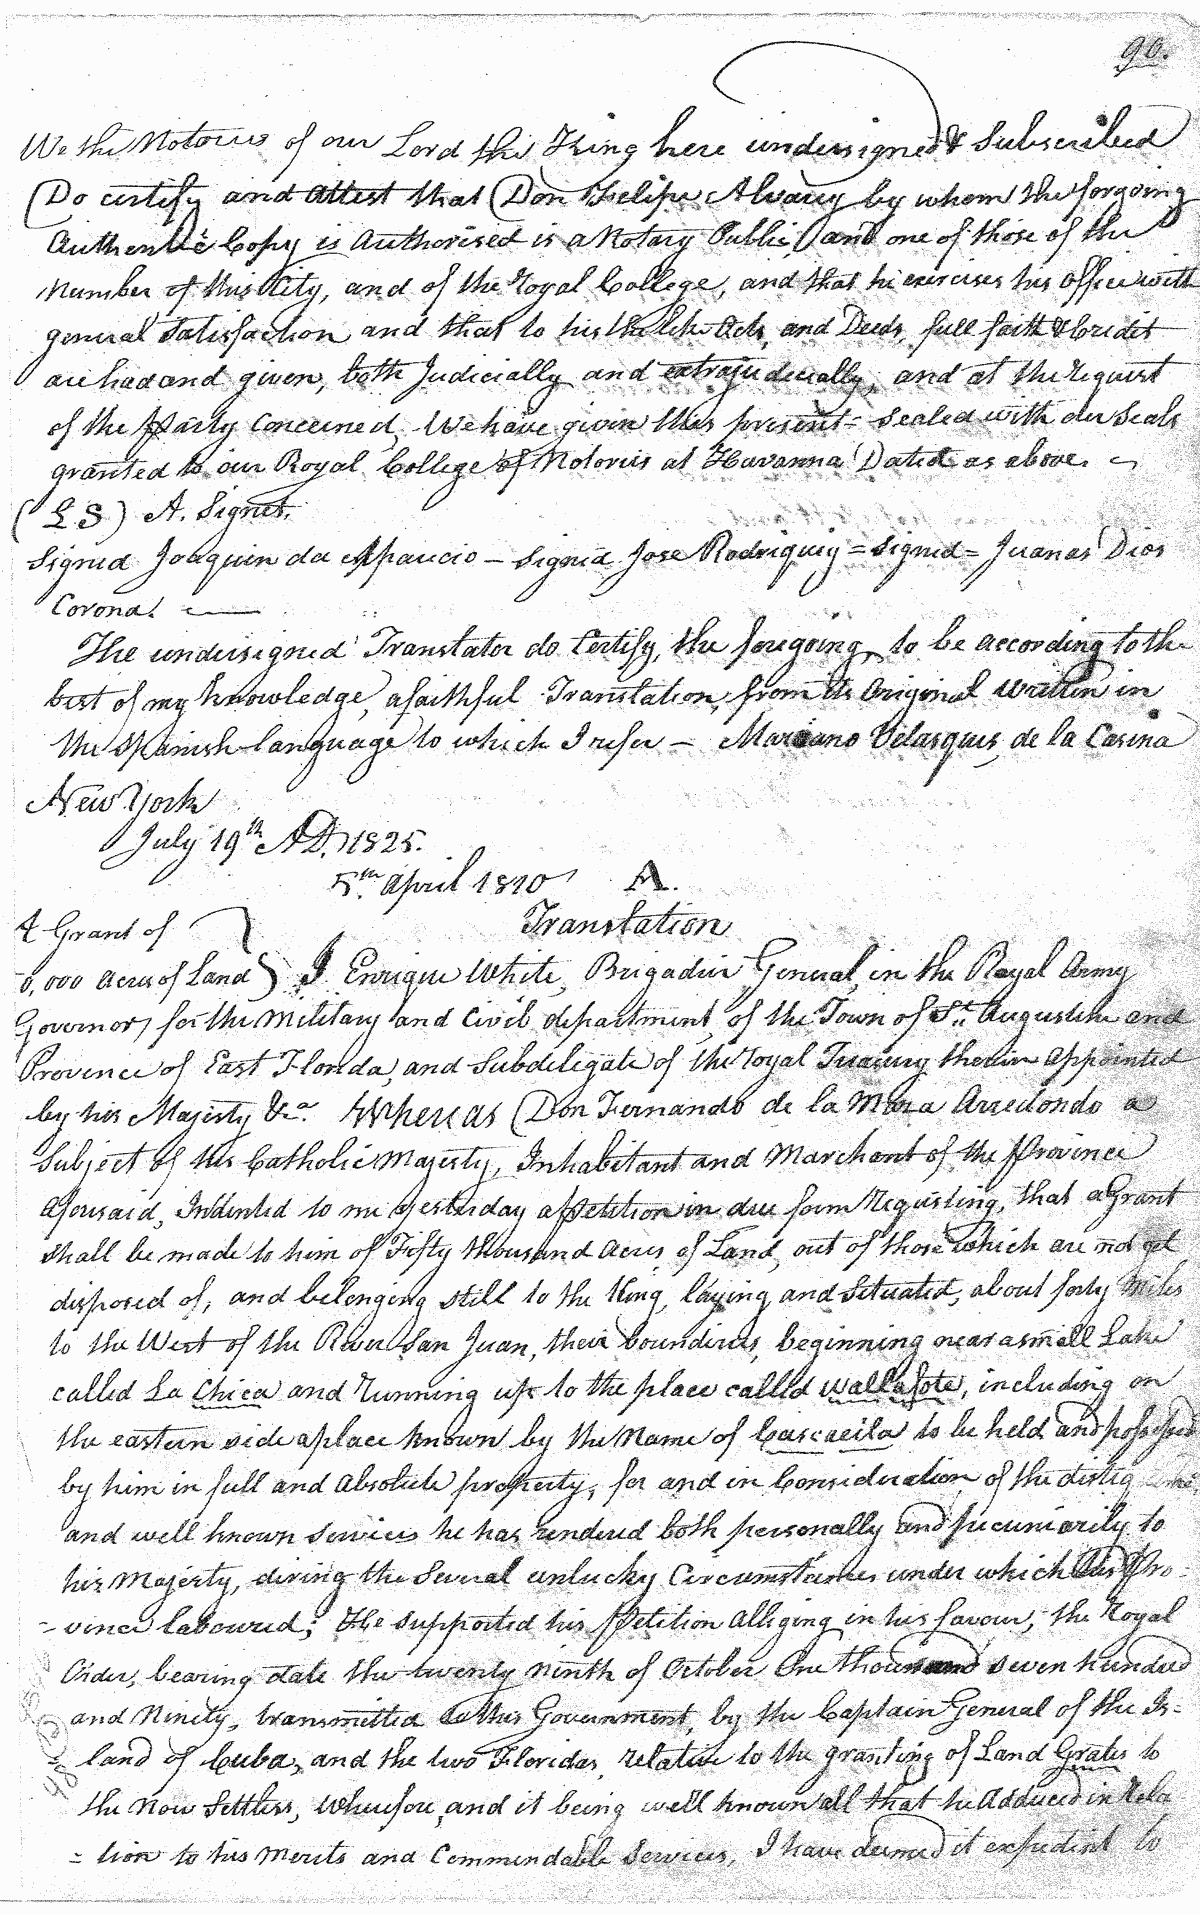 90.
We the Notories of our Lord the King here undersigned & Subscribed
Do certify and attest that Don Felipe Alvarez by whom the forgoing
Authentic Copy is Authorised is a Notary Public, and one of those of the
Number of this City, and of the Royal College, and that he exercises his office with
general Satisfaction and that to his the like Acts, and Deeds, full faith & Credit
are had and given, both Judicially and extrajudicially, and at the request
of the Party Concerned, We have given this present = Sealed with our Seals
granted to our Royal College of Notories at Havanna Dated as above.
(L S) A. Signet.
Signed Joaquin da Aparicio – Signed Jose Rodriquez = Signed = Juanas Dios
Corona.
The undersigned Translator do Certify, the foregoing, to be according to the
best of my knowledge, a faithful Translation, from its Original written in
the Spanish language to which I refer – Mariano Velasques, de la Casina
New York
July 19th AD. 1825.
5th April 1810 A.
Translation
A Grant of
0,000 acres of Land } I Enrique White, Brigadier General, in the Royal Army
Governor, for the Military and Civil department, of the Town of St. Augustine and
Province of East Florida, and Subdelegate of the Royal Treasury therein appointed
by his Majesty &a. Whereas Don Fernando de la Maza Arredondo a
Subject of his Catholic Majesty, Inhabitant and Marchant of the Province
aforesaid, Indented to me yesterday a Petition in due form requesting, that a Grant
shall be made to him of Fifty thousand Acres, of Land, out of those which are not yet
disposed of, and belonging still to the King, laying and Situated, about forty Miles
to the West of the River San Juan, their boundires, beginning near a small Lake
called La Chica and running up to the place called Wallafote, including on
the eastern side a place known by the Name of Cascacila to be held and possessed
by him in full and absolute property, for and in Consideration of the distig
and well known Services he has rendered both personally and pecuniarily to
his Majesty, diring the Several unlucky Circumstances under which this Pro-
-vince laboured; He supported his Petition Alleging in his favour, the Royal
Order, bearing date the twenty ninth of October One thousand seven hundred
and Ninety, transmitted to this Government, by the Captain General of the Is=
land of Cuba, and the two Floridas, relative to the granting of Land Grates to
the Now Settlers, Wherefore, and it being well known all that he Adduced in Rela
= tion to his Merits and Commendable Services, I have deemed it expedient to